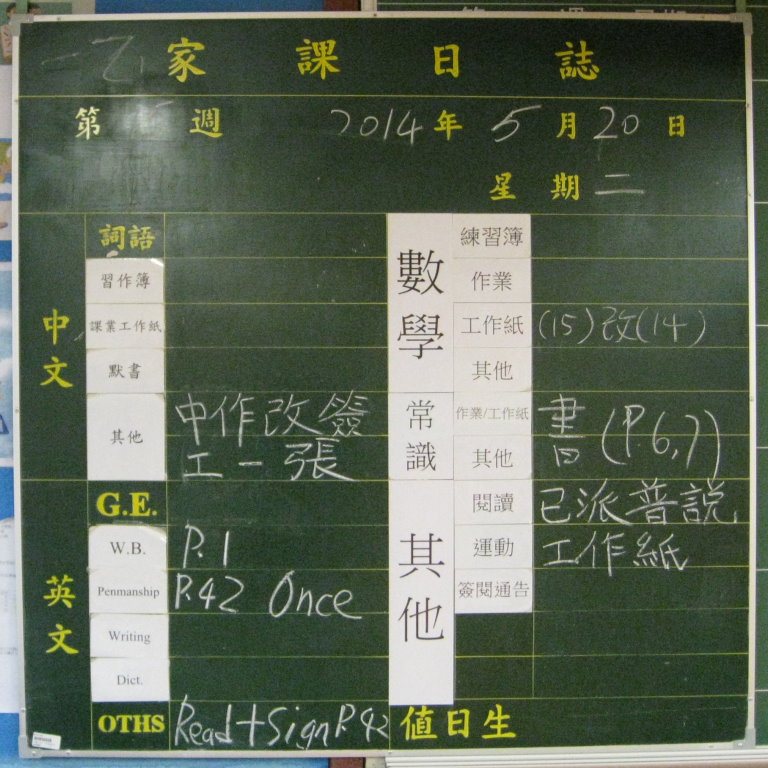 一乙 家課日誌
第 週 2014年5月20日
星期二
中文
詞語
習作簿
課業工作紙
默書
其他 中作改簽
工一張
英文
G.E.
W.B. P.1
Penmanship P.42 Once
Writing
Dict.
OTHS Read+Sign P.42
數學
練習簿
作業
工作紙 (15)改(14)
其他
常識
作業/工作紙 書(P.6,7)
其他
其他
閱讀 已派普說,
運動 工作紙
簽閱通告
值日生